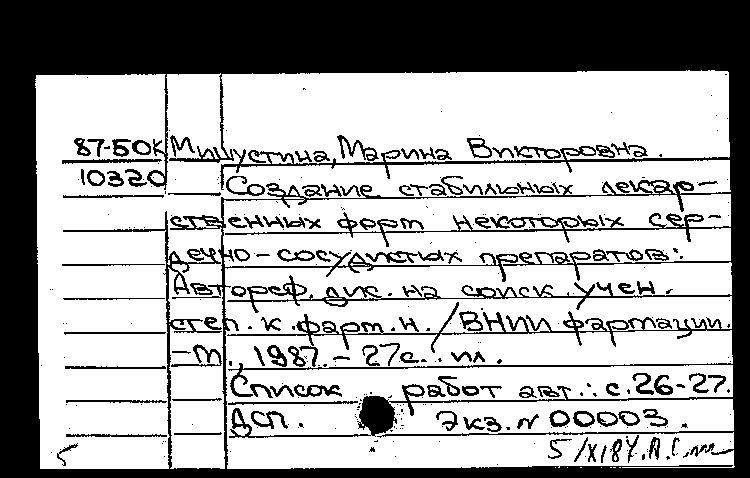 87-50К Мишустина, Марина Викторовна.
10320 Создание стабильных лекар-
ственных форм некоторых сер-
дечно-сосудистых препаратов:
Автореф. дис. на соиск. учен.
степ. к. фарм. н. / ВНИИ фармации.
-М., 1987. - 27с.: ил.
Список работ авт.: с. 26-27.
ДСП. Экз. N 00003.
5